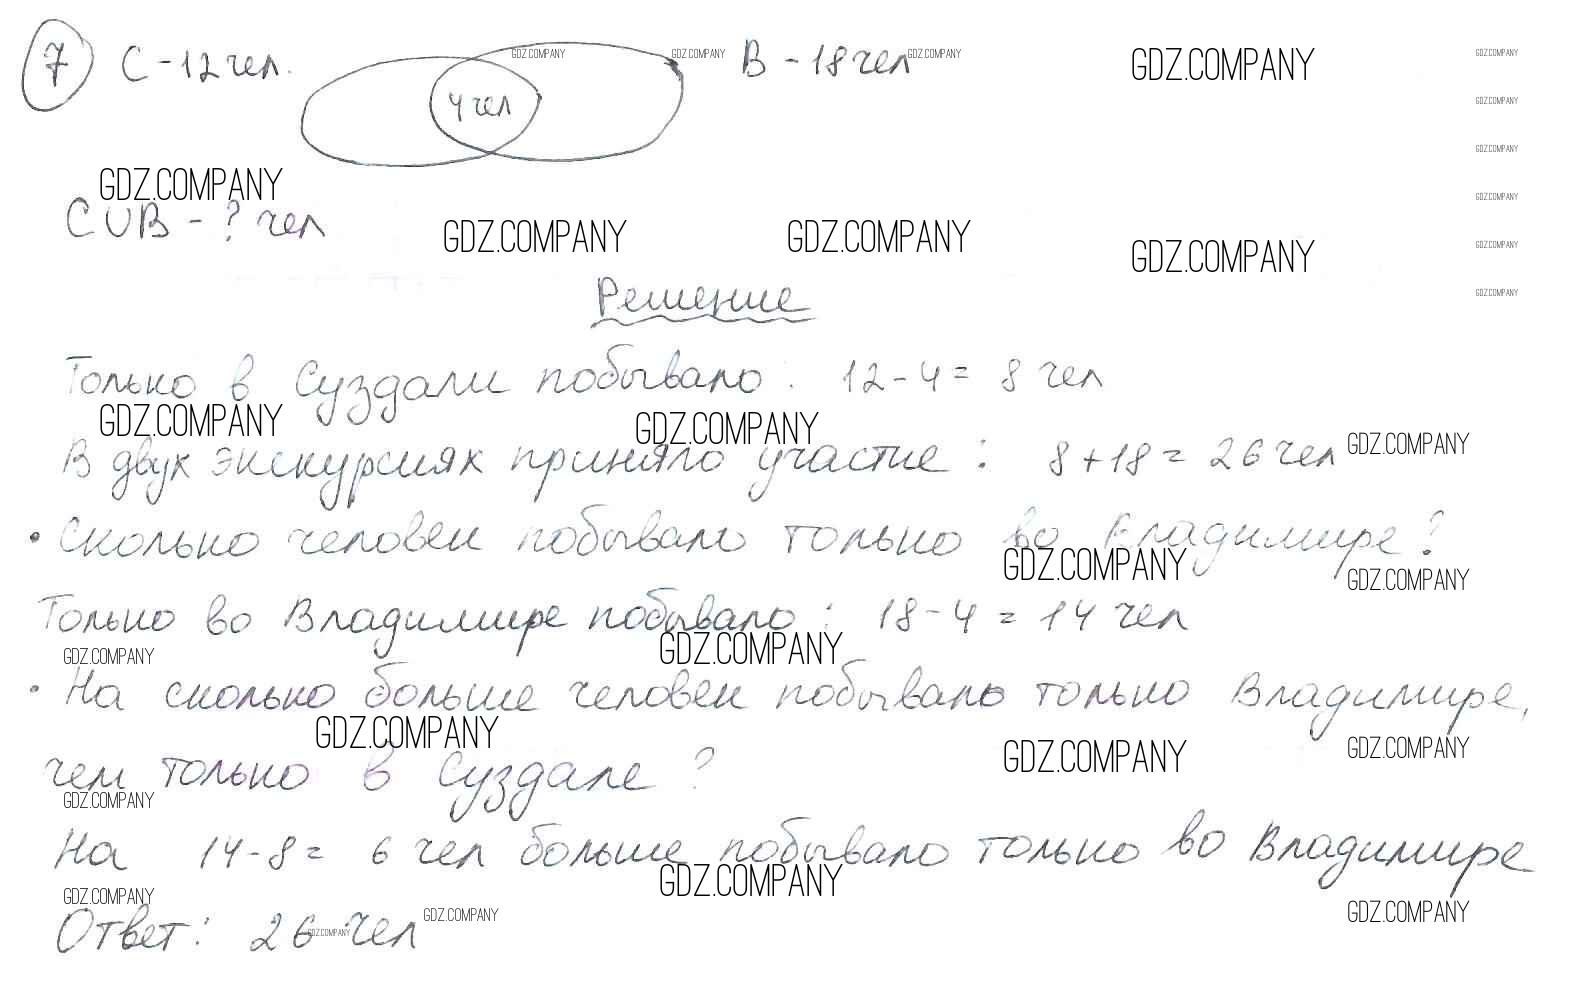 7 С - 12 чел. 4 чел В - 18 чел
GDZ.COMPANY GDZ.COMPANY GDZ.COMPANY GDZ.COMPANY GDZ.COMPANY
GDZ.COMPANY
GDZ.COMPANY
GDZ.COMPANY GDZ.COMPANY
С U В - ? чел
GDZ.COMPANY GDZ.COMPANY GDZ.COMPANY GDZ.COMPANY
GDZ.COMPANY
Решение
Только в Суздали побывало : 12 - 4 = 8 чел
GDZ.COMPANY GDZ.COMPANY GDZ.COMPANY
В двух экскурсиях приняло участие : 8 + 18 = 26 чел
• Сколько человек побывало только во Владимире?
GDZ.COMPANY GDZ.COMPANY
Только во Владимире побывало : 18 - 4 = 14 чел
GDZ.COMPANY GDZ.COMPANY
• На сколько больше человек побывало только Владимире,
GDZ.COMPANY GDZ.COMPANY GDZ.COMPANY
чем только в Суздале ?
GDZ.COMPANY
На 14 - 8 = 6 чел больше побывало только во Владимире
GDZ.COMPANY GDZ.COMPANY
Ответ : 26 чел
GDZ.COMPANY GDZ.COMPANY GDZ.COMPANY